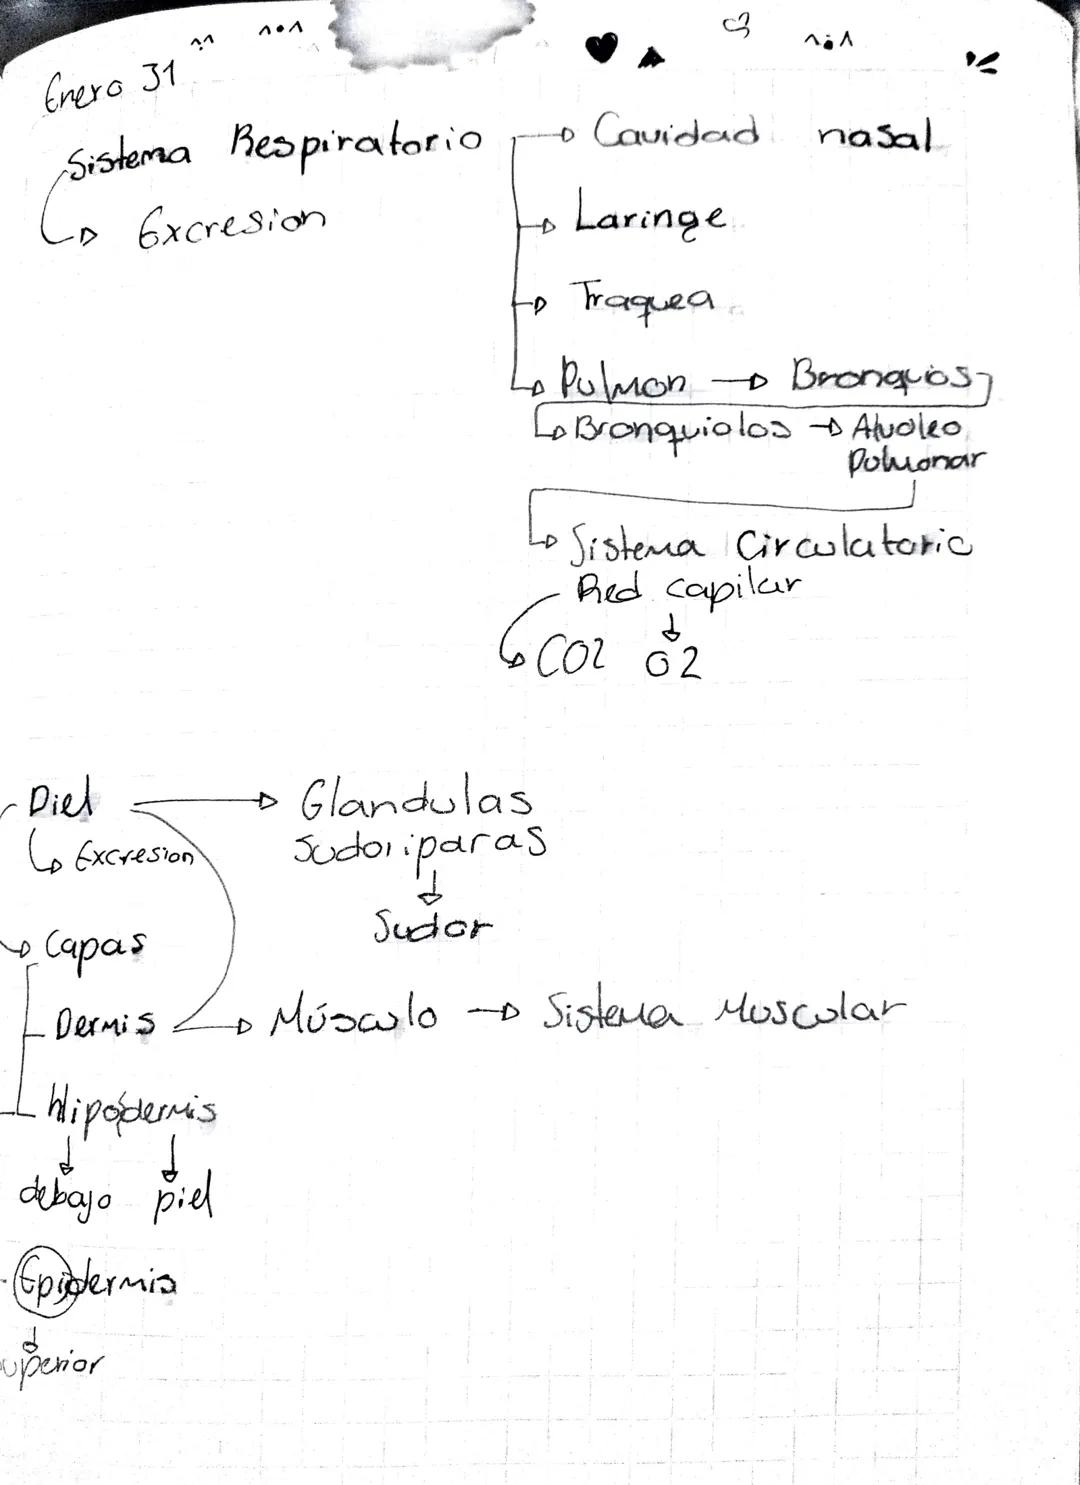 Enero 31
Sistema Respiratorio → Cavidad nasal
↳ Excresion
→ Laringe
→ Traquea
→ Pulmon → Bronquios
↳ Bronquiolos → Alvoleo
Pulmonar
↳ Sistema Circulatorio
Red capilar
CO2 O2
Piel → Glandulas
sudoriparas
↳ Excresion
Sudor
→ Capas
Dermis → Músculo → Sistema Muscular
Hipodermis
debajo piel
Epidermis
uperior